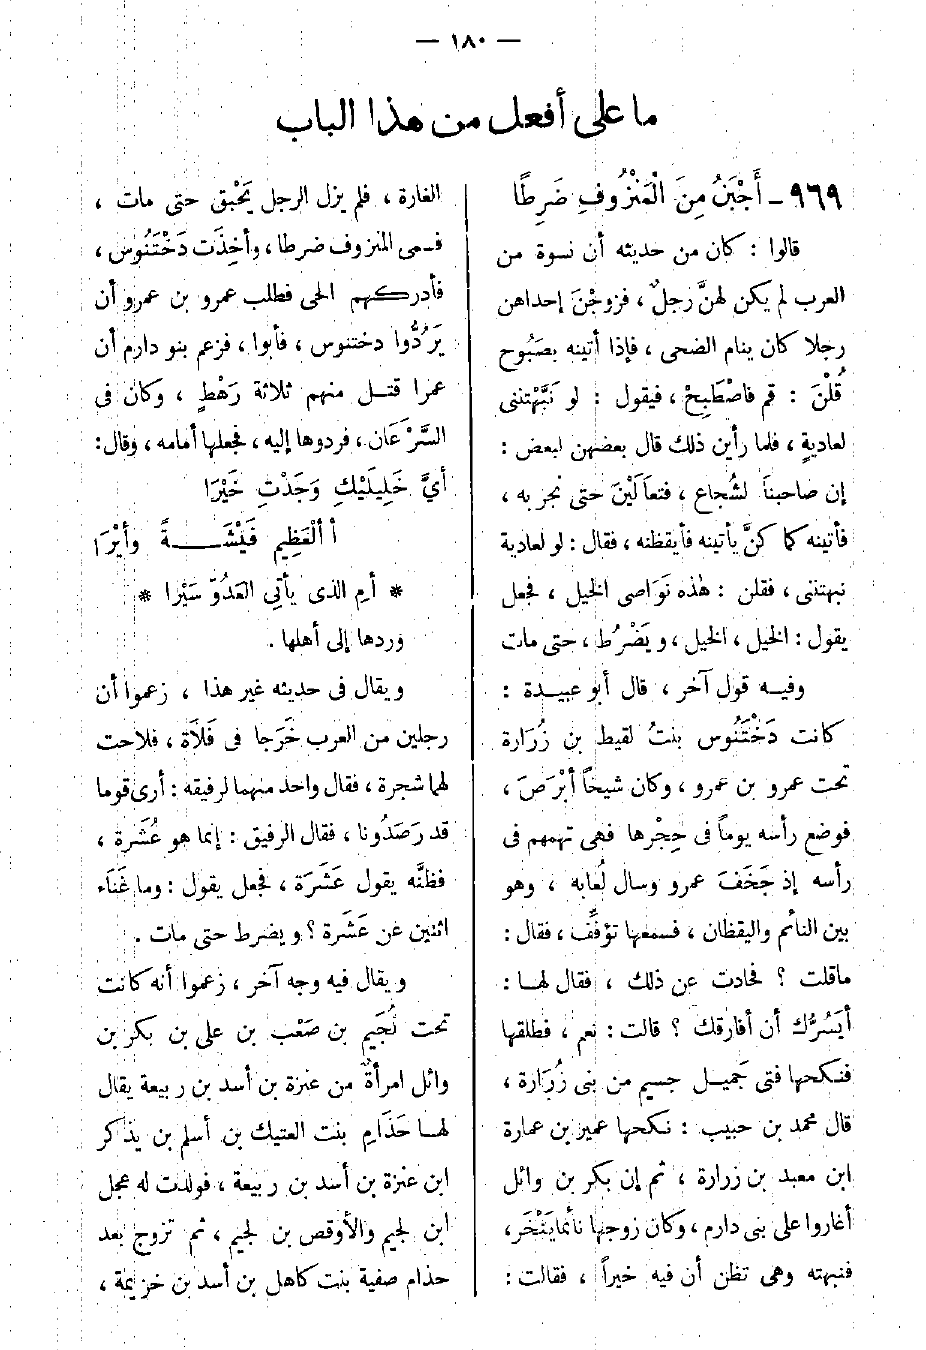 — ١٨٠ —
ما على أفعل من هذا الباب
٩٦٩ - أَجْبَنُ مِنَ الْمَنْزُوفِ ضَرِطًا
قالوا : كان من حديثه أن نسوة من
العرب لم يكن لهنَّ رجلٌ ، فزوجْنَ إحداهن
رجلا كان ينام الضحى ، فإذا أتينه بصَبُوح
قُلْنَ : قم فاصْطَبِحْ ، فيقول : لو نَبَّهْتننى
لعاديةٍ ، فلما رأين ذلك قال بعضهن لبعض :
إن صاحبنا لشُجاع ، فتعالَيْنَ حتى نجربه ،
فأتينه كما كنَّ يأتينه فأيقظنه ، فقال : لو لعادية
نبهتننى ، فقلن : هٰذه نَوَاصى الخيل ، فجعل
يقول : الخيل ، الخيل ، ويَضْرُط ، حتى مات
وفيه قول آخر ، قال أبو عبيدة :
كانت دَخْتَنُوس بنتُ لقيط بن زُرَارة
تحت عمرو بن عمرو ، وكان شيخاً أبْرَصَ ،
فوضع رأسه يوماً فى حِجْرها فهى تهمهم فى
رأسه إذ جَخَفَ عمرو وسال لُعابه ، وهو
بين النائم واليقظان ، فسمعها تؤفِّف ، فقال :
ماقلت ؟ فحادت عن ذلك ، فقال لها :
أيَسُرُّك أن أفارقك ؟ قالت : نعم ، فطلقها
فنكحها فتى جَمِيل جسيم من بنى زُرَارة ،
قال محمد بن حبيب : نكحها عمير بن عمارة
ابن معبد بن زرارة ، ثم إن بكر بن وائل
أغاروا على بنى دارم ، وكان زوجها نائما يَنْخَر ،
فنبهته وهى تظن أن فيه خيراً ، فقالت :
الغارة ، فلم يزل الرجل يَحْبِق حتى مات ،
فسمى المنزوف ضرطا ، وأخِذَت دَخْتَنُوس ،
فأدركهم الحى فطلب عمرو بن عمرو أن
يَرُدُّوا دختنوس ، فأبوا ، فزعم بنو دارم أن
عمرا قتل منهم ثلاثة رَهْطٍ ، وكان فى
السَّرْعَان ، فردوها إليه ، فجعلها أمامه ، وقال :
أيَّ خَلِيلَيْكِ وَجَدْتِ خَيْرَا
أألْعَظِيمِ فَيْشَةً وأيْرَا
* أمِ الذى يأتِي العَدُوّ سَيْرا *
وردها إلى أهلها .
ويقال فى حديثه غير هذا ، زعموا أن
رجلين من العرب خَرَجا فى فَلَاة ، فلاحت
لهما شجرة ، فقال واحد منهما لرفيقه : أرى قوما
قد رَصَدُونا ، فقال الرفيق : إنما هو عُشَرة ،
فظنَّه يقول عَشَرَة ، فجعل يقول : وما غَنَاء
اثنين عن عَشَرة ؟ ويضرط حتى مات .
ويقال فيه وجه آخر ، زعموا أنه كانت
تحت لُجَيم بن صَعْب بن على بن بكر بن
وائل امرأةٌ من عنزة بن أسد بن ربيعة يقال
لها حَذَامِ بنت العتيك بن أسلم بن يذكر
ابن عنزة بن أسد بن ربيعة ، فولدت له عجل
ابن لجيم والأوقص بن لجيم ، ثم تزوج بعد
حذام صفية بنت كاهل بن أسد بن خزيمة ،